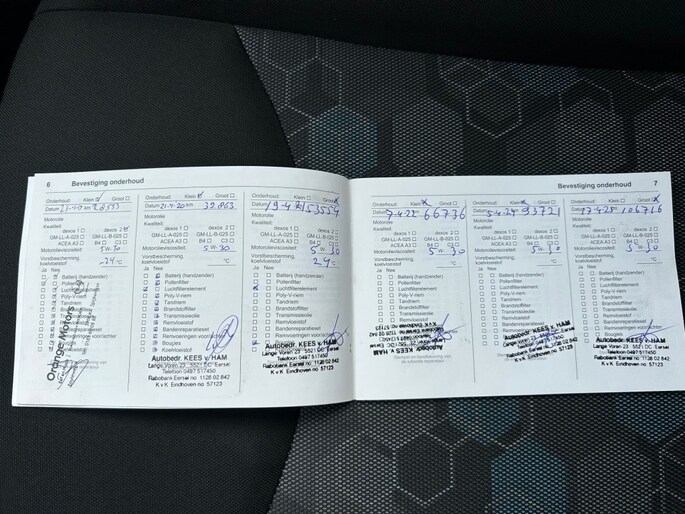 6 Bevestiging onderhoud
Onderhoud: Klein Groot
Datum km
Motorolie
Kwaliteit:
dexos 1 dexos 2
GM-LL-A-025 GM-LL-B-025
ACEA A3 B4 C3
Motorolieviscositeit: 5w30
Vorstbescherming, koelvloeistof -24 °C
Ja Nee
Batterij (handzender)
Pollenfilter
Luchtfilterelement
Poly-V-riem
Orange Motors
Onderhoud: Klein Groot
Datum 21-4-20 km 39.863
Motorolie
Kwaliteit:
dexos 1 dexos 2
GM-LL-A-025 GM-LL-B-025
ACEA A3 B4 C3
Motorolieviscositeit: 5w30
Vorstbescherming, koelvloeistof °C
Ja Nee
Batterij (handzender)
Pollenfilter
Luchtfilterelement
Poly-V-riem
Tandriem
Brandstoffilter
Transmissieolie
Remvloeistof
Bandenreparatieset
Remvoeringen voor/achter
Bougies
Koelvloeistof
Autobedr. KEES v. HAM
Lange Voren 23 5521 DC Eersel
Telefoon 0497 517450
Rabobank Eersel no 1128 02 842
K v K Eindhoven no 57123
Onderhoud: Klein Groot
Datum 19-4-21 53554
Motorolie
Kwaliteit:
dexos 1 dexos 2
GM-LL-A-025 GM-LL-B-025
ACEA A3 B4 C3
Motorolieviscositeit: 5w30
Vorstbescherming, koelvloeistof 24 °C
Ja Nee
Batterij (handzender)
Pollenfilter
Luchtfilterelement
Poly-V-riem
Tandriem
Brandstoffilter
Transmissieolie
Remvloeistof
Bandenreparatieset
Remvoeringen voor/achter
Autobedr. KEES v. HAM
Lange Voren 23 5521 DC Eersel
Telefoon 0497 517450
Rabobank Eersel no 1128 02 842
K v K Eindhoven no 57123
Bevestiging onderhoud 7
Onderhoud: Klein Groot
Datum 7-4-22 66736
Motorolie
Kwaliteit:
dexos 1 dexos 2
GM-LL-A-025 GM-LL-B-025
ACEA A3 B4 C3
Motorolieviscositeit: 5w30
Vorstbescherming, koelvloeistof °C
Ja Nee
Batterij (handzender)
Pollenfilter
Luchtfilterelement
Poly-V-riem
Tandriem
Brandstoffilter
Transmissieolie
Autobedr. KEES v. HAM
Onderhoud: Klein Groot
Datum 5-4-24 93721
Motorolie
Kwaliteit:
dexos 1 dexos 2
GM-LL-A-025 GM-LL-B-025
ACEA A3 B4 C3
Motorolieviscositeit: 5w30
Vorstbescherming, koelvloeistof °C
Ja Nee
Batterij (handzender)
Pollenfilter
Luchtfilterelement
Poly-V-riem
Tandriem
Brandstoffilter
Transmissieolie
Remvloeistof
Bandenreparatieset
Autobedr. KEES v. HAM
Lange Voren 23 5521 DC Eersel
Telefoon 0497 517450
Rabobank Eersel no 1128 02 842
K v K Eindhoven no 57123
Onderhoud: Klein Groot
Datum 17-4-25 106716
Motorolie
Kwaliteit:
dexos 1 dexos 2
GM-LL-A-025 GM-LL-B-025
ACEA A3 B4 C3
Motorolieviscositeit: 5w30
Vorstbescherming, koelvloeistof °C
Ja Nee
Batterij (handzender)
Pollenfilter
Luchtfilterelement
Poly-V-riem
Tandriem
Brandstoffilter
Transmissieolie
Remvloeistof
Bandenreparatieset
Remvoeringen voor/achter
Bougies
Autobedr. KEES v. HAM
Lange Voren 23 5521 DC Eersel
Telefoon 0497 517450
Rabobank Eersel no 1128 02 842
K v K Eindhoven no 57123